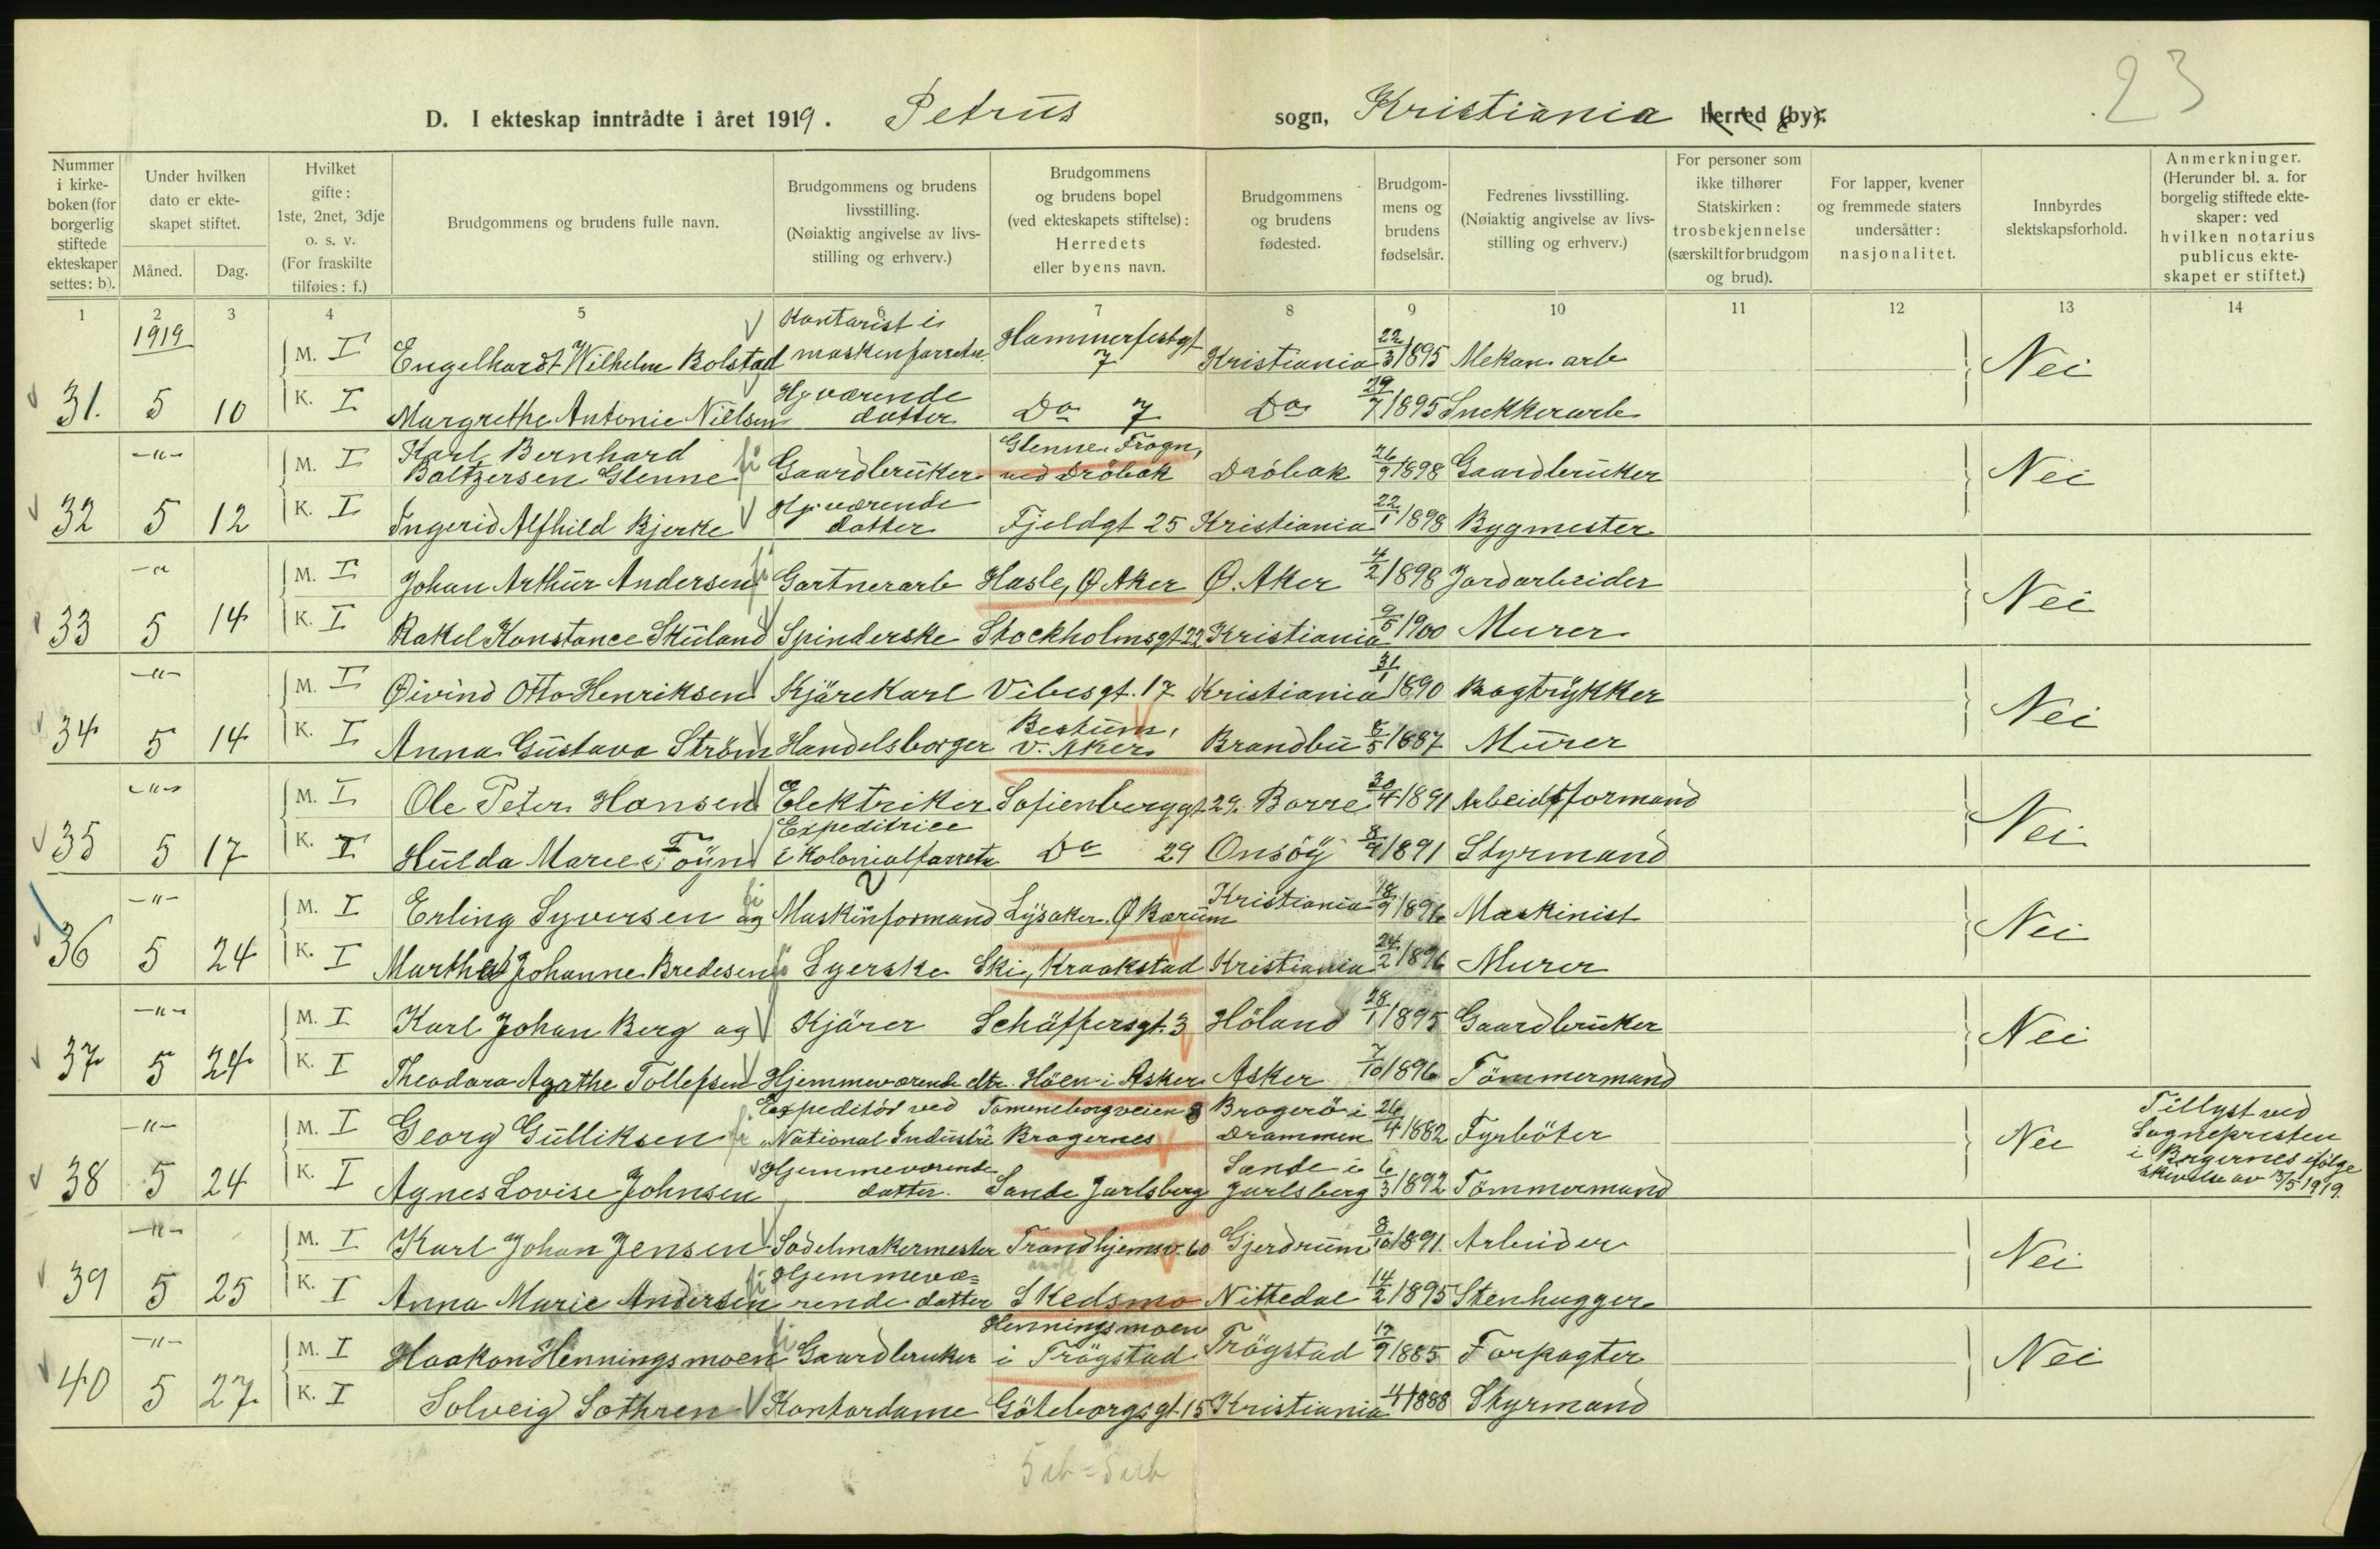 23
D. I ekteskap inntrådte i året 1919. Petrus sogn, Kristiania herred (by).
Nummer i kirkeboken (for borgerlig stiftede ekteskaper settes: b).
Under hvilken dato er ekteskapet stiftet.
Måned. Dag.
Hvilket gifte: 1ste, 2net, 3dje o. s. v. (For fraskilte tilføies: f.)
Brudgommens og brudens fulle navn.
Brudgommens og brudens livsstilling. (Nøiaktig angivelse av livsstilling og erhverv.)
Brudgommens og brudens bopel (ved ekteskapets stiftelse): Herredets eller byens navn.
Brudgommens og brudens fødested.
Brudgommens og brudens fødselsår.
Fedrenes livsstilling. (Nøiaktig angivelse av livsstilling og erhverv.)
For personer som ikke tilhører Statskirken: trosbekjennelse (særskilt for brudgom og brud).
For lapper, kvener og fremmede staters undersåtter: nasjonalitet.
Innbyrdes slektskapsforhold.
Anmerkninger. (Herunder bl. a. for borgelig stiftede ekteskaper: ved hvilken notarius publicus ekteskapet er stiftet.)
1 2 3 4 5 6 7 8 9 10 11 12 13 14
1919
M. I Engelhardt Wilhelm Bolstad Kontorist i maskinforretn. Hammerfestgt 7 Kristiania 22/3 1895 Mekan. arb Nei
31. 5 10 K. I Margrethe Antonie Nielsen Hj. værende datter Do 7 Do 29/7 1895 Snekkerarb
-"- M. I Karl Bernhard Baltzersen Glenne Gaardbruker Glenne, Frogn, ved Dröbak Dröbak 26/9 1898 Gaardbruker Nei
32 5 12 K. I Ingerid Alfhild Bjerke Hj. værende datter Fjeldgt 25 Kristiania 22/1 1898 Bygmester
-"- M. I Johan Arthur Andersen Gartnerarb Hasle, Ø Aker Ø. Aker 4/2 1898 Jordarbeider Nei
33 5 14 K. I Rakel Konstance Skuland Spinderske Stockholmsgt 22 Kristiania 9/5 1900 Murer
-"- M. I Øivind Otto Henriksen Kjärekarl Vibesgt. 17 Kristiania 31/1 1890 Bogtrykker Nei
34 5 14 K. I Anna Gustava Ström Handelsborger Bestum, V. Aker Brandbu 8/5 1887 Murer
-"- M. I Ole Peter Hansen Elektriker Sofienberggt 29. Borre 30/4 1891 Arbeidsformand Nei
35 5 17 K. I Hulda Marie Töyn Expeditrice i Kolonialforretn Do 29 Onsöy 8/4 1891 Styrmand
-"- M. I Erling Syversen og Maskinformand Lysaker, Ø Bærum Kristiania 18/9 1896 Maskinist Nei
36 5 24 K. I Martha Johanne Bredesen Syerske Ski, Kraakstad Kristiania 24/2 1896 Murer
-"- M. I Karl Johan Berg og Kjärer Schäffersgt. 3 Höland 28/1 1895 Gaardbruker Nei
37 5 24 K. I Theodora Agathe Tollefsen Hjemmeværende dtr. Höen i Asker Asker 7/10 1896 Tömmermand
-"- M. I Georg Gulliksen Expeditör ved "National Industri Tomineborgveien 8 Bragernes Bragerö i Drammen 26/4 1882 Fyrböter Nei Tillyst ved Sognepresten i Bragernes ifölge skrivelse av 13/5 1919.
38 5 24 K. I Agnes Lovise Johnsen Hjemmeværende datter. Sande Jarlsberg Sande i Jarlsberg 6/3 1892 Tömmermand
-"- M. I Karl Johan Jensen Sadelmakermester Trondhjemsv. 60 Gjerdrum 8/10 1891. Arbeider Nei
39 5 25 K. I Anna Marie Andersen Hjemmeværende datter Skedsmo Nittedal 14/2 1895 Stenhugger
-"- M. I Haakon Henningsmoen Gaardbruker Henningsmoen i Trögstad Trögstad 17/9 1885 Forpagter Nei
40 5 27. K. I Solveig Sothren Kontordame Göteborgsgt. 15 Kristiania 4/1 1888 Styrmand